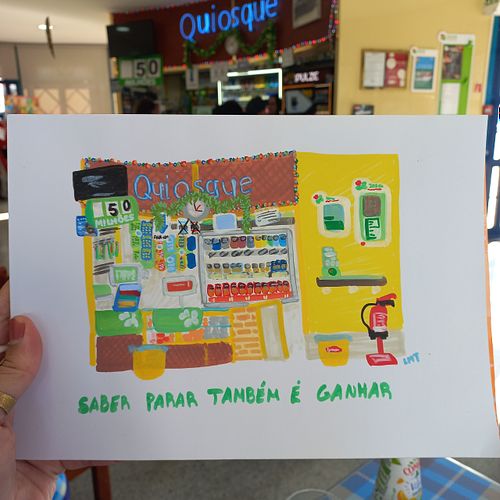 Quiosque
50
PULZE
Quiosque
50
MILHÕES
LMT
SABER PARAR TAMBÉM É GANHAR